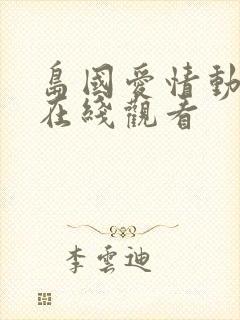 島國愛情動
在綫觀看
李雲迪